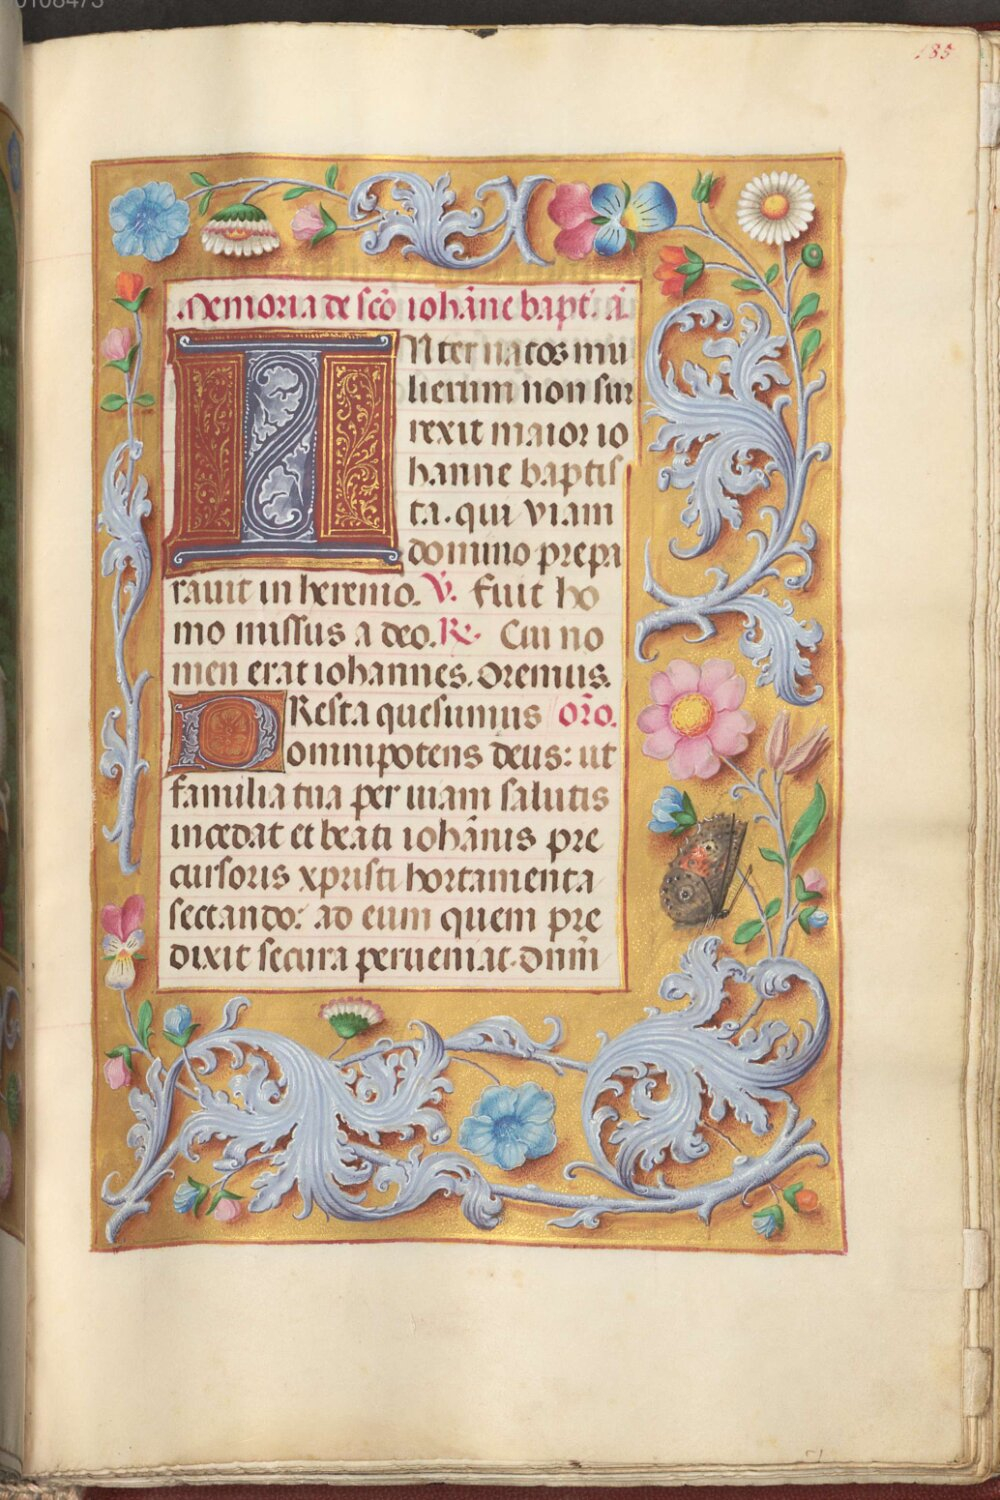 185
Memoria de scō iohāne bapt. a.
INter natos mu
lierum non sur
rexit maior io
hanne baptis
ta. qui viam
domino prepa
rauit in heremo. V. Fuit ho
mo missus a deo. R. Cui no
men erat iohannes. Oremus.
PResta quesumus orō.
omnipotens deus: ut
familia tua per uiam salutis
incedat et beati iohānis pre
cursoris xpristi hortamenta
sectando: ad eum quem pre
dixit secura perueniat. dnm̄